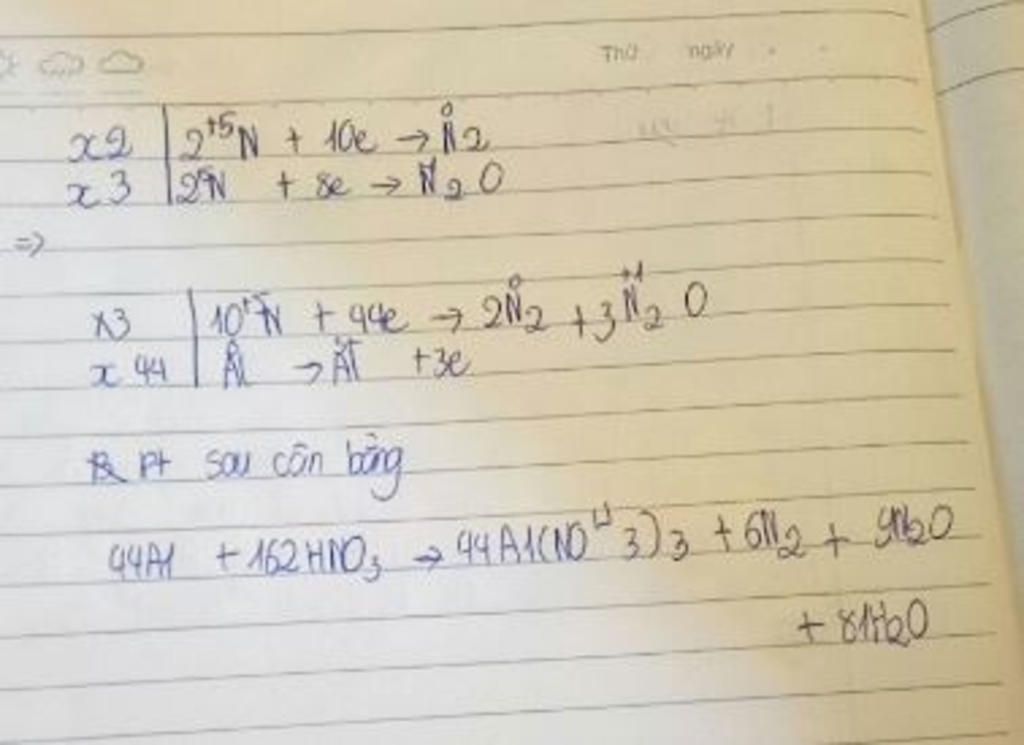 Thứ ngày
x2 | 2⁺⁵N + 10e → N⁰2
x3 | 2⁺⁵N + 8e → N₂O
=>
x3 | 10⁺⁵N + 44e → 2N⁰2 + 3N⁺¹2 O
x 44 | Al⁰ → Al³⁺ + 3e
Pt sau cân bằng
44Al + 162HNO₃ → 44Al(NO 3)3 + 6N₂ + 9N₂O
+ 81H₂O